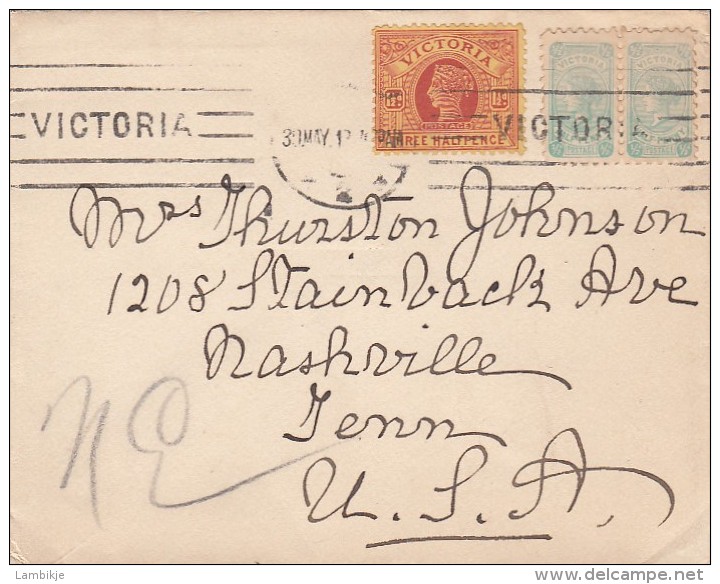 VICTORIA
VICTORIA
THREE HALFPENCE
VICTORIA
VICTORIA
VICTORIA
30 MAY
Mrs Thurston Johnson
1208 Stainback Ave
Nashville
Tenn
U.S.A.
NE
Lambikje
www.delcampe.net